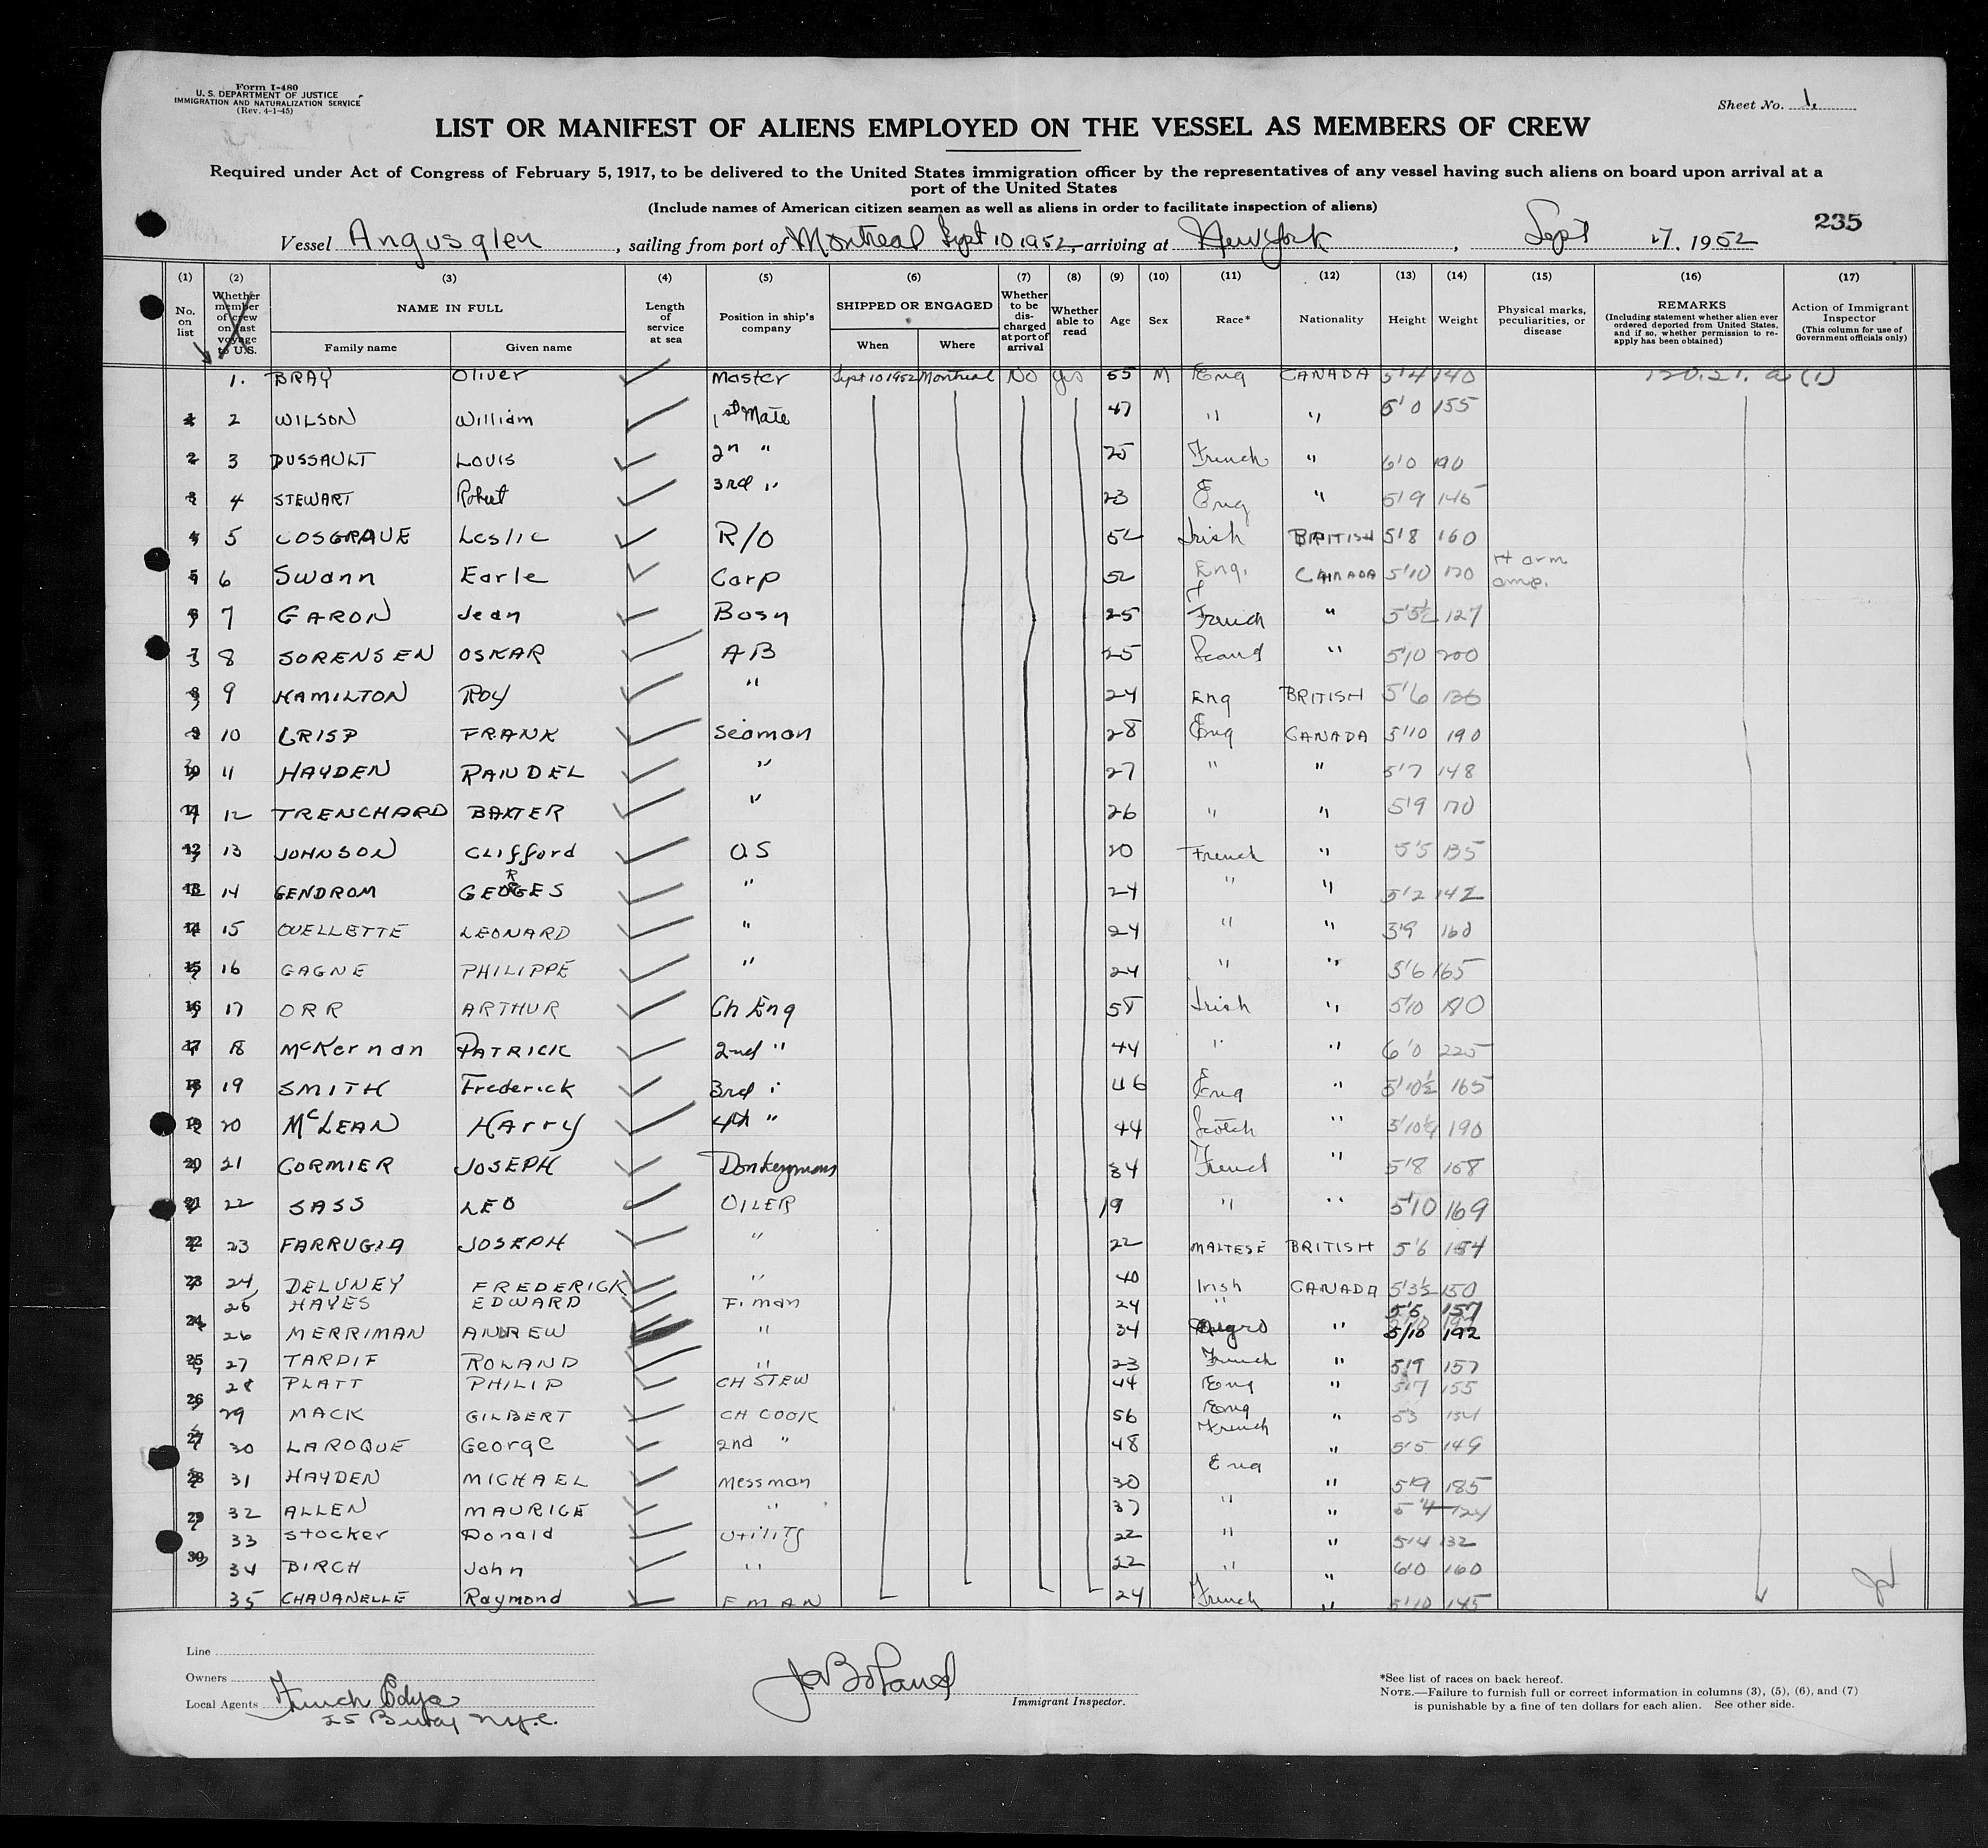 Form I-480
U. S. DEPARTMENT OF JUSTICE
IMMIGRATION AND NATURALIZATION SERVICE
(Rev. 4-1-45)
Sheet No. 1.
LIST OR MANIFEST OF ALIENS EMPLOYED ON THE VESSEL AS MEMBERS OF CREW
Required under Act of Congress of February 5, 1917, to be delivered to the United States immigration officer by the representatives of any vessel having such aliens on board upon arrival at a
port of the United States
(Include names of American citizen seamen as well as aliens in order to facilitate inspection of aliens)
235
Vessel Angusglen, sailing from port of Montreal Sept 10 1952, arriving at New York, Sept 17, 1952
(1) (2) (3) (4) (5) (6) (7) (8) (9) (10) (11) (12) (13) (14) (15) (16) (17)
No. on list
Whether member of crew on last voyage to U.S.
NAME IN FULL
Family name
Given name
Length of service at sea
Position in ship's company
SHIPPED OR ENGAGED
When
Where
Whether to be discharged at port of arrival
Whether able to read
Age
Sex
Race*
Nationality
Height
Weight
Physical marks, peculiarities, or disease
REMARKS
(Including statement whether alien ever ordered deported from United States, and if so, whether permission to reapply has been obtained)
Action of Immigrant Inspector
(This column for use of Government officials only)
1. BRAY Oliver Master Sept 10 1952 Montreal No Yes 55 M Eng CANADA 5'4 140
1 2 WILSON William 1st Mate 47 " " 5'0 155
2 3 DUSSAULT LOUIS 2n " 25 French " 6'0 190
3 4 STEWART Robert 3rd " 23 Eng " 5'9 145
4 5 COSGRAVE Leslie R/O 52 Irish BRITISH 5'8 160
5 6 Swann Earle Carp 52 Eng. CANADA 5'10 170 rt arm amp.
6 7 GARON Jean Bosn 25 French " 5'5½ 127
7 8 SORENSEN OSKAR AB 25 Scand " 5'10 200
8 9 HAMILTON ROY " 24 Eng BRITISH 5'6 136
9 10 CRISP FRANK Seaman 28 Eng CANADA 5'10 190
10 11 HAYDEN RANDEL " 27 " " 5'7 148
11 12 TRENCHARD BAXTER " 26 " " 5'9 170
12 13 JOHNSON Clifford OS 20 French " 5'5 135
13 14 GENDROM GEORGES " 24 " " 5'2 142
14 15 OUELLETTE LEONARD " 24 " " 5'9 160
15 16 GAGNE PHILIPPE " 24 " " 5'6 165
16 17 ORR ARTHUR Ch Eng 58 Irish " 5'10 180
17 18 McKernan PATRICK 2nd " 44 " " 6'0 225
18 19 SMITH Frederick 3rd " 46 Eng " 5'10½ 165
19 20 McLEAN HArry 4th " 44 Scotch " 5'10¼ 190
20 21 CORMIER JOSEPH Donkeyman 34 French " 5'8 168
21 22 SASS LEO OILER 19 " " 5'10 169
22 23 FARRUGIA JOSEPH " 22 MALTESE BRITISH 5'6 154
23 24 DELUNEY FREDERICK " 40 Irish CANADA 5'3½ 150
25 HAYES EDWARD F. man 24 " 5'5 157
24 26 MERRIMAN ANDREW " 34 Negro " 5/10 192
25 27 TARDIF ROLAND " 23 French " 5'9 157
28 PLATT PHILIP CH STEW 44 Eng " 5'7 155
26 29 MACK GILBERT CH COOK 56 Eng " 5'3 134
27 30 LAROQUE George 2nd " 48 French " 5'5 149
28 31 HAYDEN MICHAEL Messman 30 Eng " 5'9 185
29 32 ALLEN MAURICE " 37 " " 5'4 124
33 Stocker Donald Utility 22 " " 5'4 132
30 34 BIRCH John " 22 " " 6'0 160
35 CHAVANELLE Raymond F MAN 24 French " 5'10 145
Line
Owners
Local Agents French Edye
25 Bway N.Y.C.
Immigrant Inspector.
*See list of races on back hereof.
NOTE.—Failure to furnish full or correct information in columns (3), (5), (6), and (7)
is punishable by a fine of ten dollars for each alien. See other side.